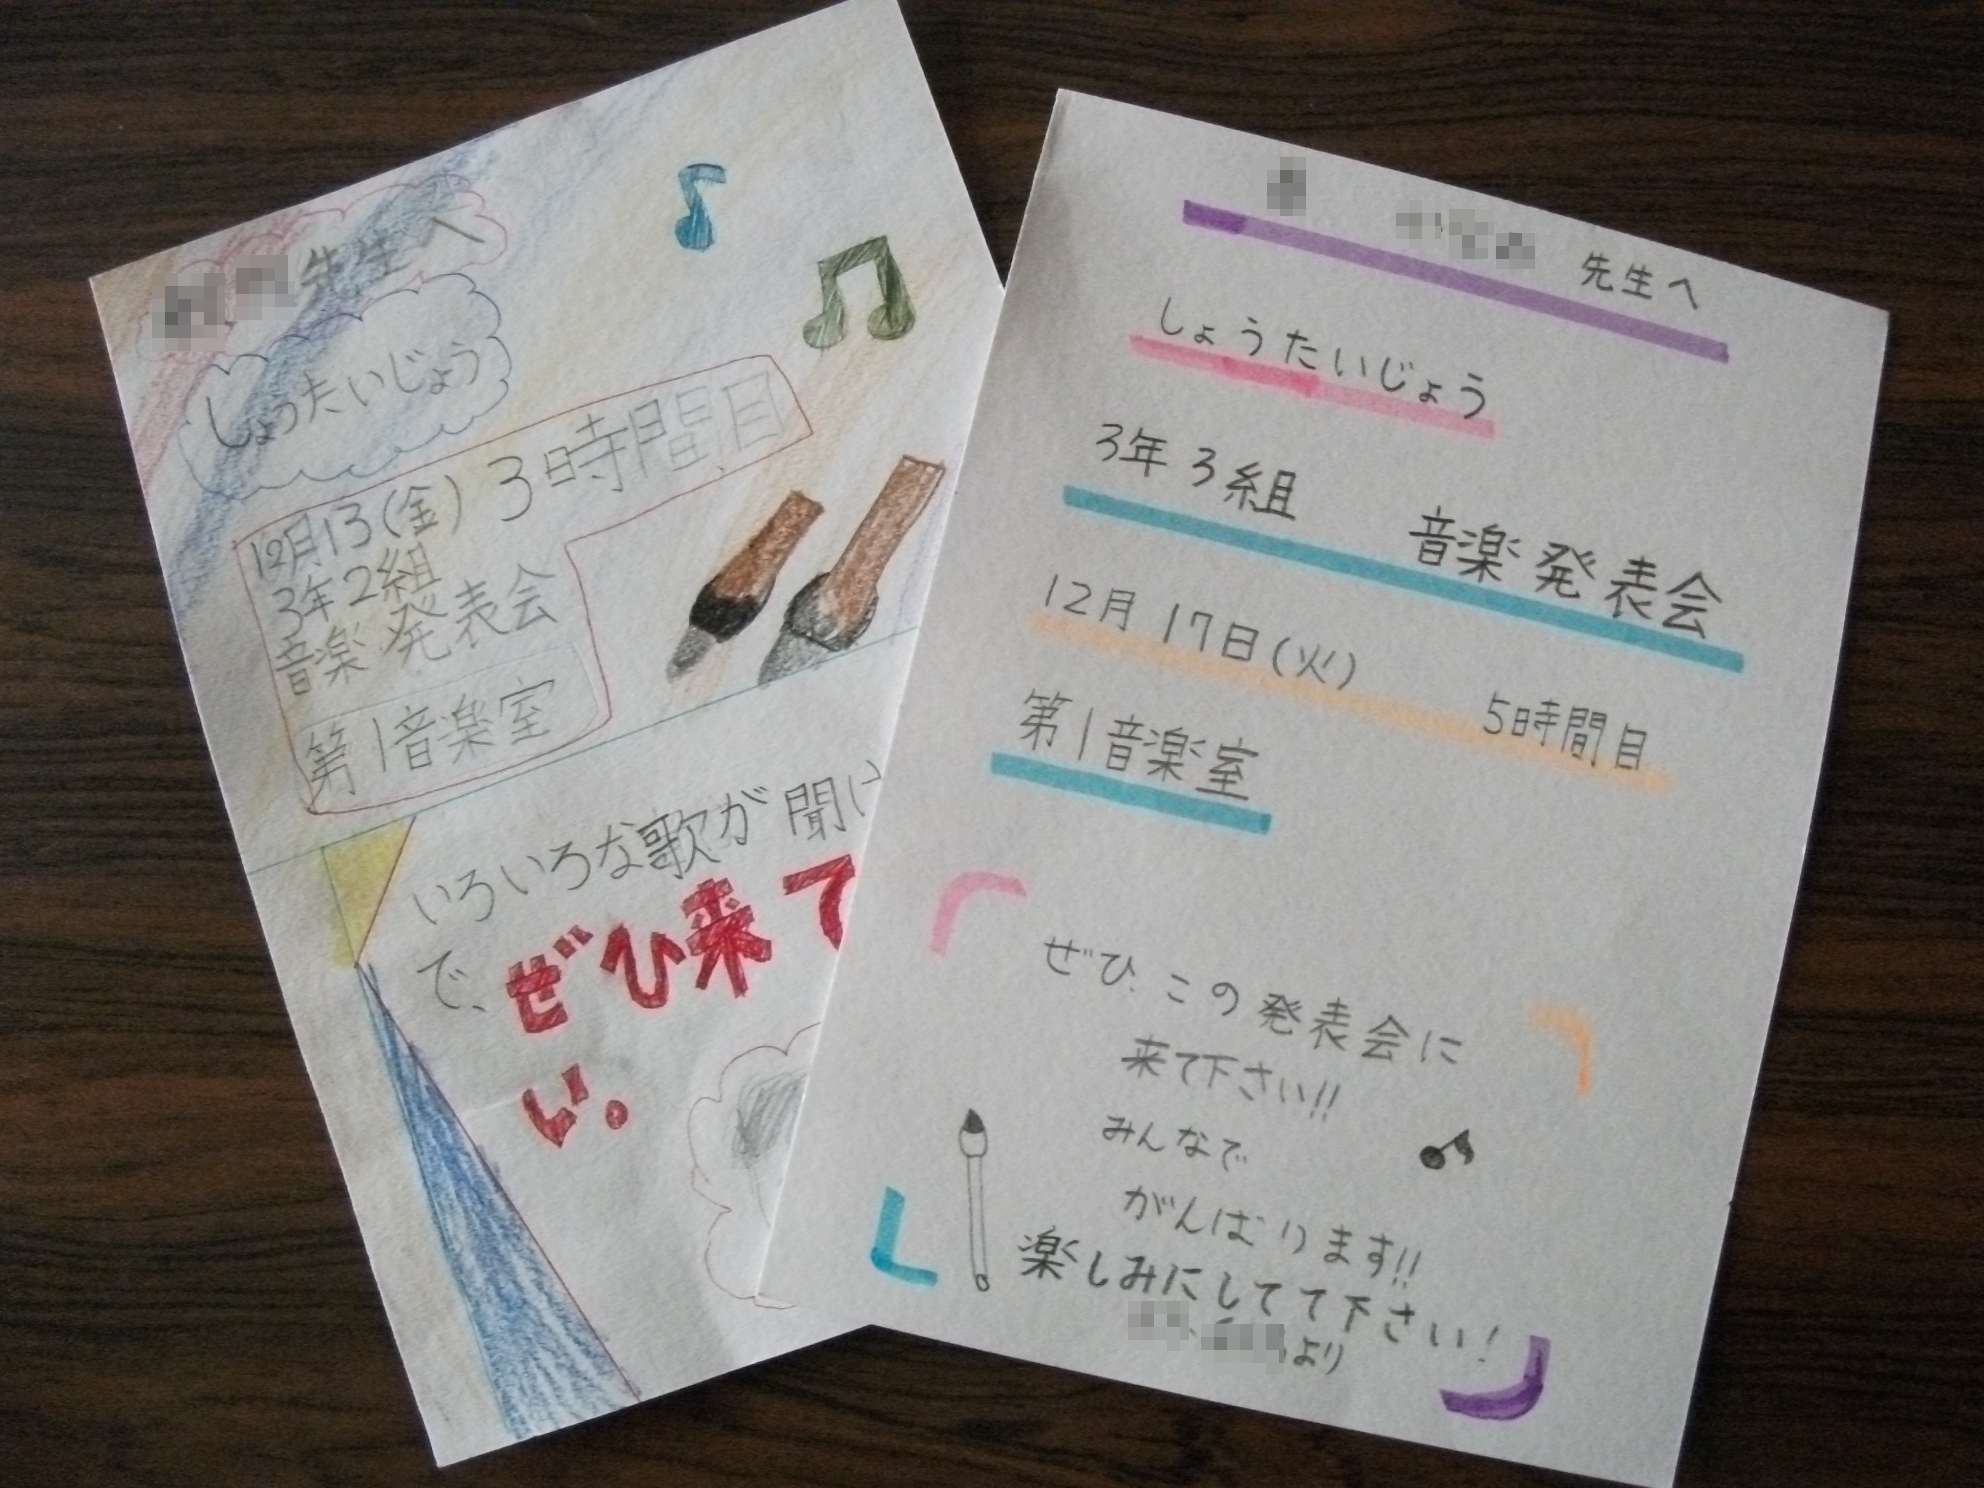 先生へ
しょうたいじょう
12月13(金) 3時間目
3年2組
音楽発表会
第1音楽室
いろいろな歌が聞け
で、ぜひ来て
い。
先生へ
しょうたいじょう
3年3組 音楽発表会
12月17日(火) 5時間目
第1音楽室
ぜひ、この発表会に
来て下さい!!
みんなで
がんばります!!
楽しみにしてて下さい!
より